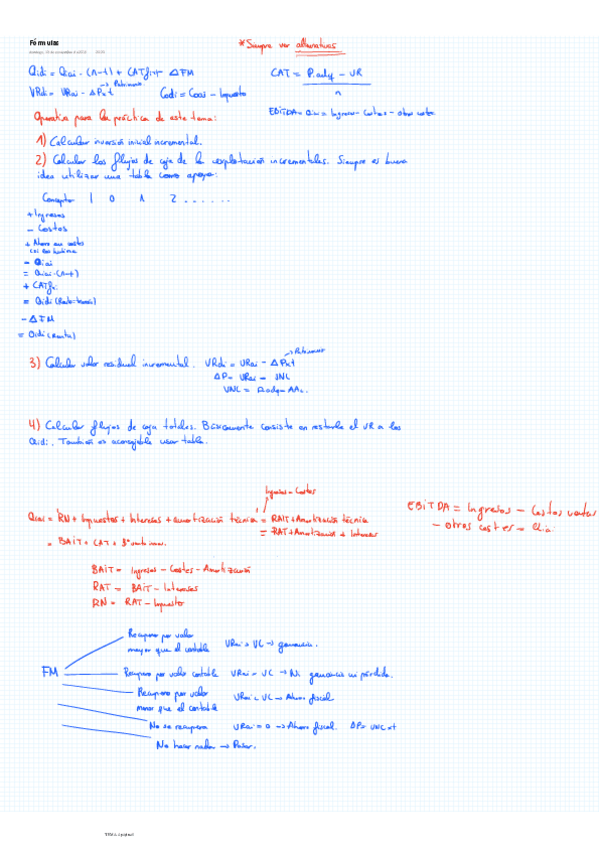 Fórmulas
* Siempre ver alternativas
Qidi = Qiai · (1-t) + CATfi·t - ΔFM
CAT = P.adq - VR / n
VRdi = VRai - ΔPn·t → Patrimonio
Codi = Coai - Impuesto
EBITDA = Qiai = Ingresos - Costes - otros costes
Operativa para la práctica de este tema:
1) Calcular inversión inicial incremental.
2) Calcular los flujos de caja de la explotación incrementales. Siempre es buena
idea utilizar una tabla como apoyo:
Conceptos | 0 1 2 ......
+ Ingresos
- Costos
+ Ahorro en costes
- Qiai
= Qiai · (1-t)
+ CATfi·t
= Qidi
- ΔFM
= Qidi (Renta)
3) Calcular valor residual incremental. VRdi = VRai - ΔPn·t → Patrimonio
ΔP = VRai - VNC
VNC = P.adq - AAc.
4) Calcular flujos de caja totales. Básicamente consiste en restarle el VR a los
Qidi. También es aconsejable usar tabla.
Ingresos - Costes
Qiai = RN + Impuestos + Intereses + amortización técnica = RAIT + Amortización técnica
= RAT + Amortización + Intereses
= BAIT + CAT +
EBITDA = Ingresos - Costos ventas
- otros costes = Qiai
BAIT = Ingresos - Costes - Amortización
RAT = BAIT - Intereses
RN = RAT - Impuestos
FM
Recupero por valor
mayor que el contable VRai > VC → ganancia.
Recupero por valor contable VRai = VC → Ni ganancia ni pérdida.
Recupero por valor
menor que el contable VRai < VC → Ahorro fiscal
No se recupera VRai = 0 → Ahorro fiscal. ΔP = VNC·t
No hacer nada → Pasar.